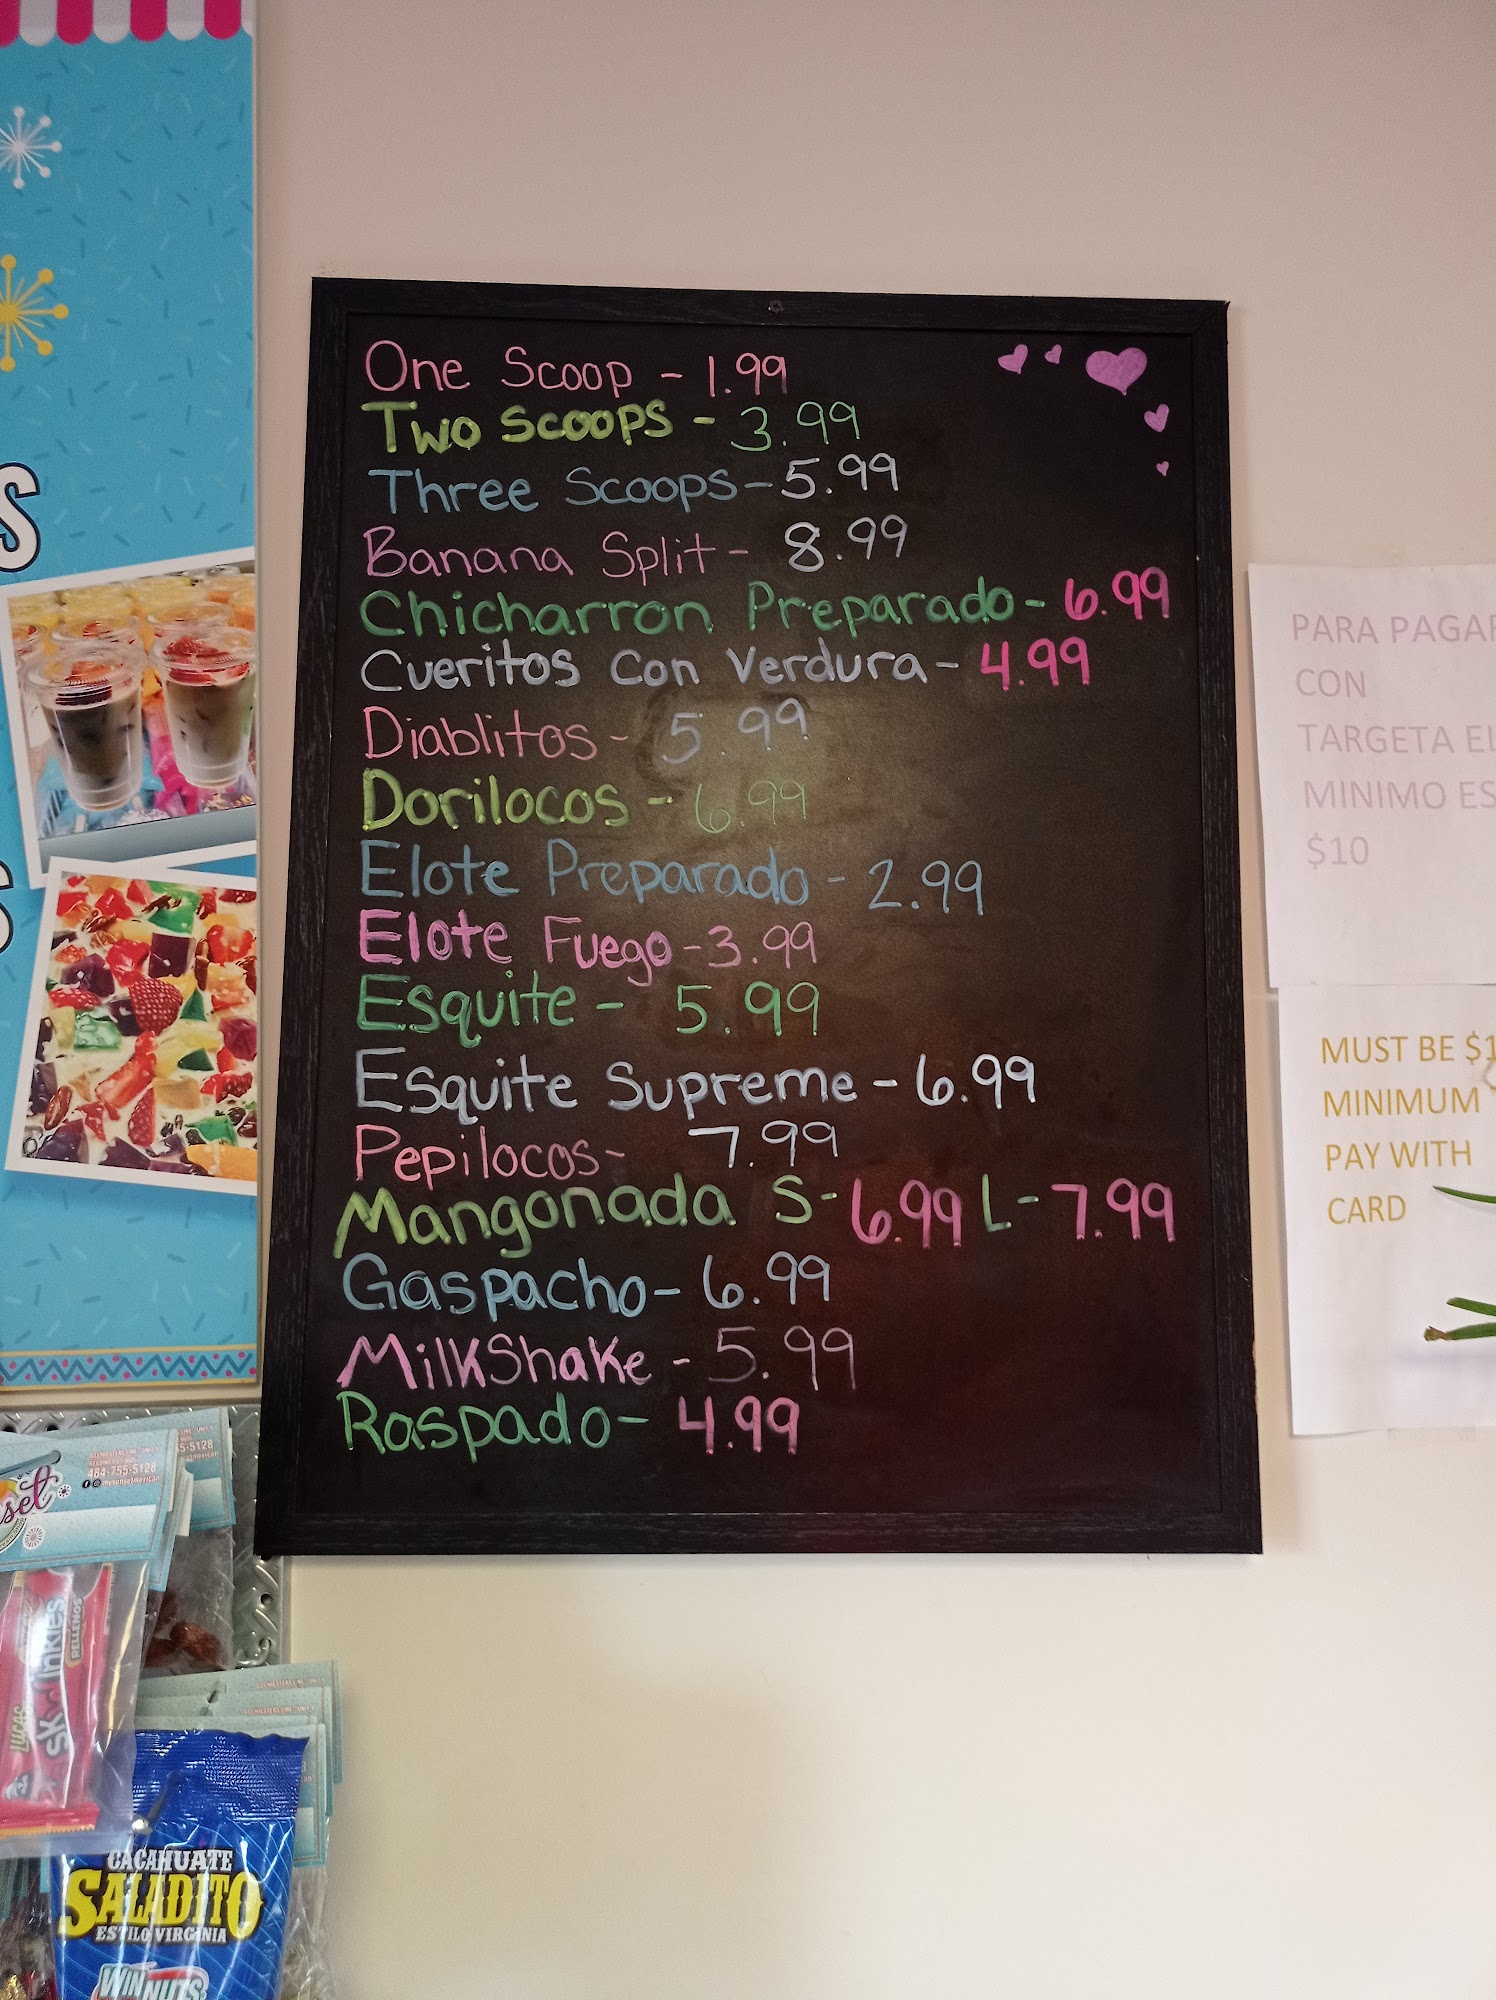 One Scoop - 1.99
Two Scoops - 3.99
Three Scoops - 5.99
Banana Split - 8.99
Chicharron Preparado - 6.99
Cueritos con Verdura - 4.99
Diablitos - 5.99
Dorilocos - 6.99
Elote Preparado - 2.99
Elote Fuego - 3.99
Esquite - 5.99
Esquite Supreme - 6.99
Pepilocos - 7.99
Mangonada S - 6.99 L - 7.99
Gaspacho - 6.99
MilkShake - 5.99
Raspado - 4.99
PARA PAGAR
CON
TARGETA EL
MINIMO ES
$10
MUST BE $1
MINIMUM
PAY WITH
CARD
S
S
5-5128
484-755-5128
set
LUCAS
Skwinkles
RELLENOS
CACAHUATE
SALADITO
ESTILO VIRGINIA
WINNUTS